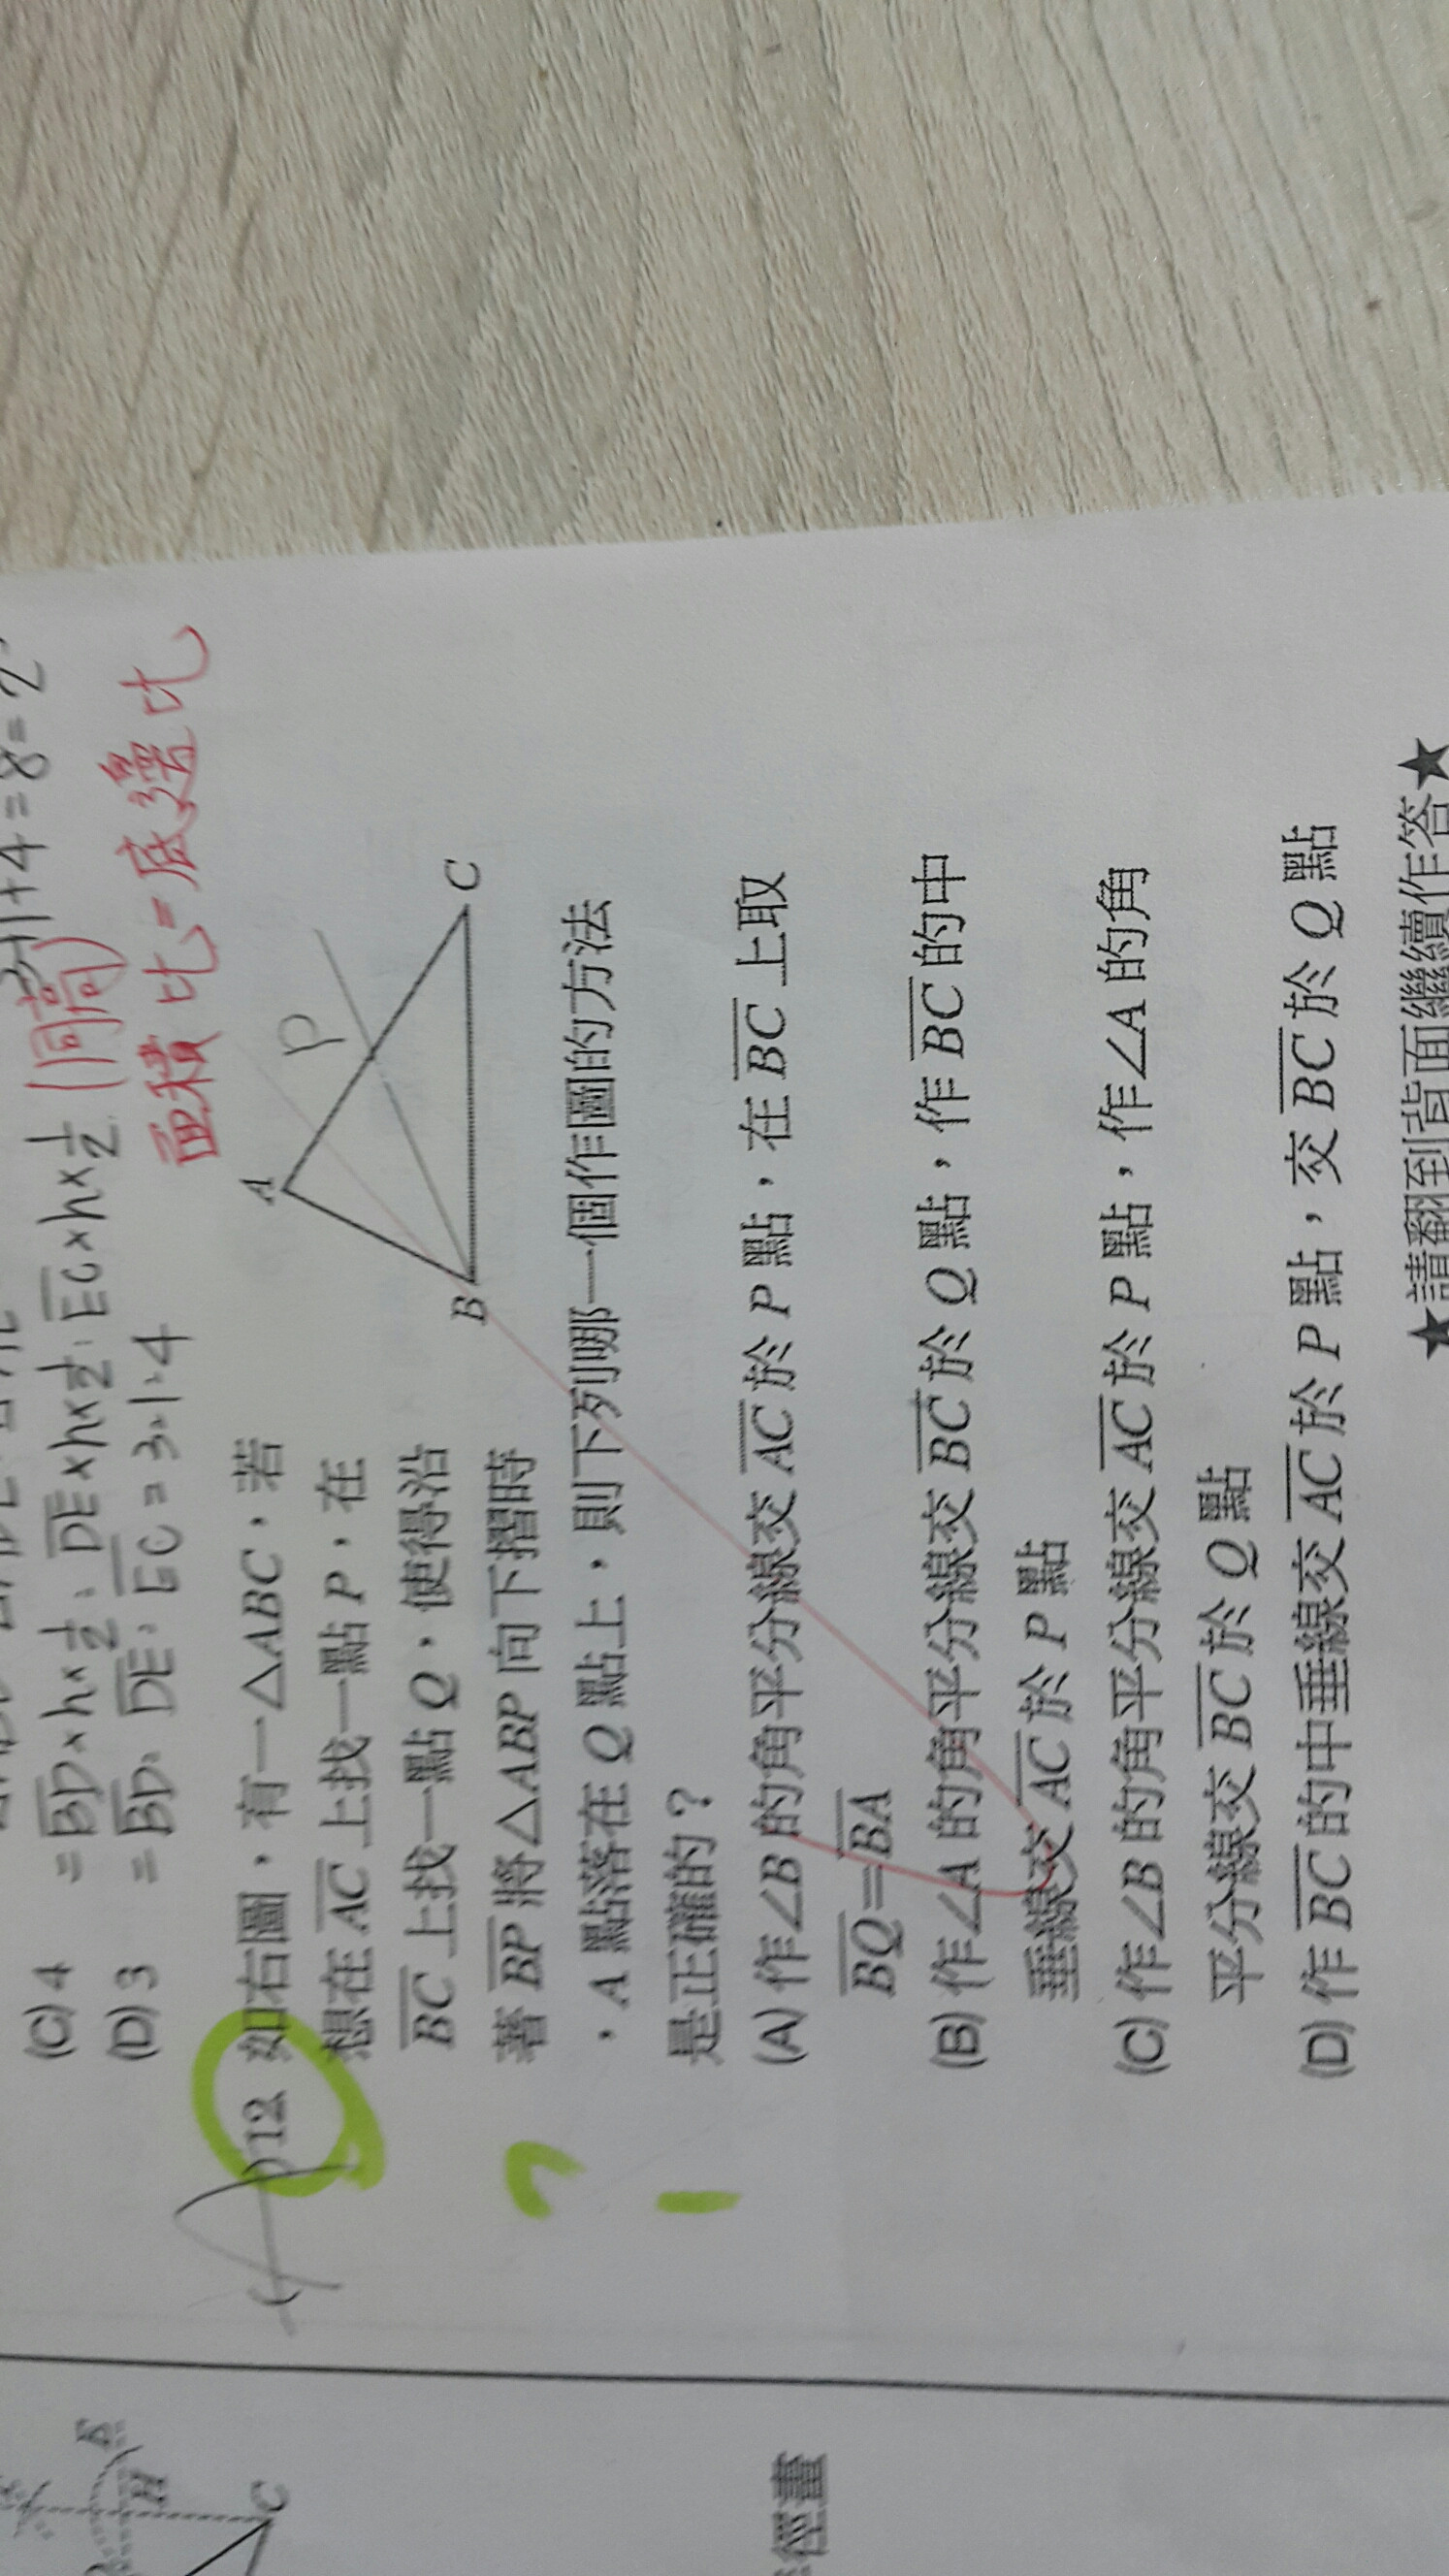 (C) 4 = BD×h×1/2:DE×h×1/2:EC×h×1/2 (同高)
(D) 3 = BD:DE:EC=3:1:4
面積比=底邊比
12 如右圖,有一△ABC,若
想在 AC 上找一點 P,在
BC 上找一點 Q,使得沿
著 BP 將△ABP 向下摺時
,A 點落在 Q 點上,則下列哪一個作圖的方法
是正確的?
A
B
C
P
(A) 作∠B 的角平分線交 AC 於 P 點,在 BC 上取
BQ=BA
(B) 作∠A 的角平分線交 BC 於 Q 點,作 BC 的中
垂線交 AC 於 P 點
(C) 作∠B 的角平分線交 AC 於 P 點,作∠A 的角
平分線交 BC 於 Q 點
(D) 作 BC 的中垂線交 AC 於 P 點,交 BC 於 Q 點
★請翻到背面繼續作答★
H
C
徑畫